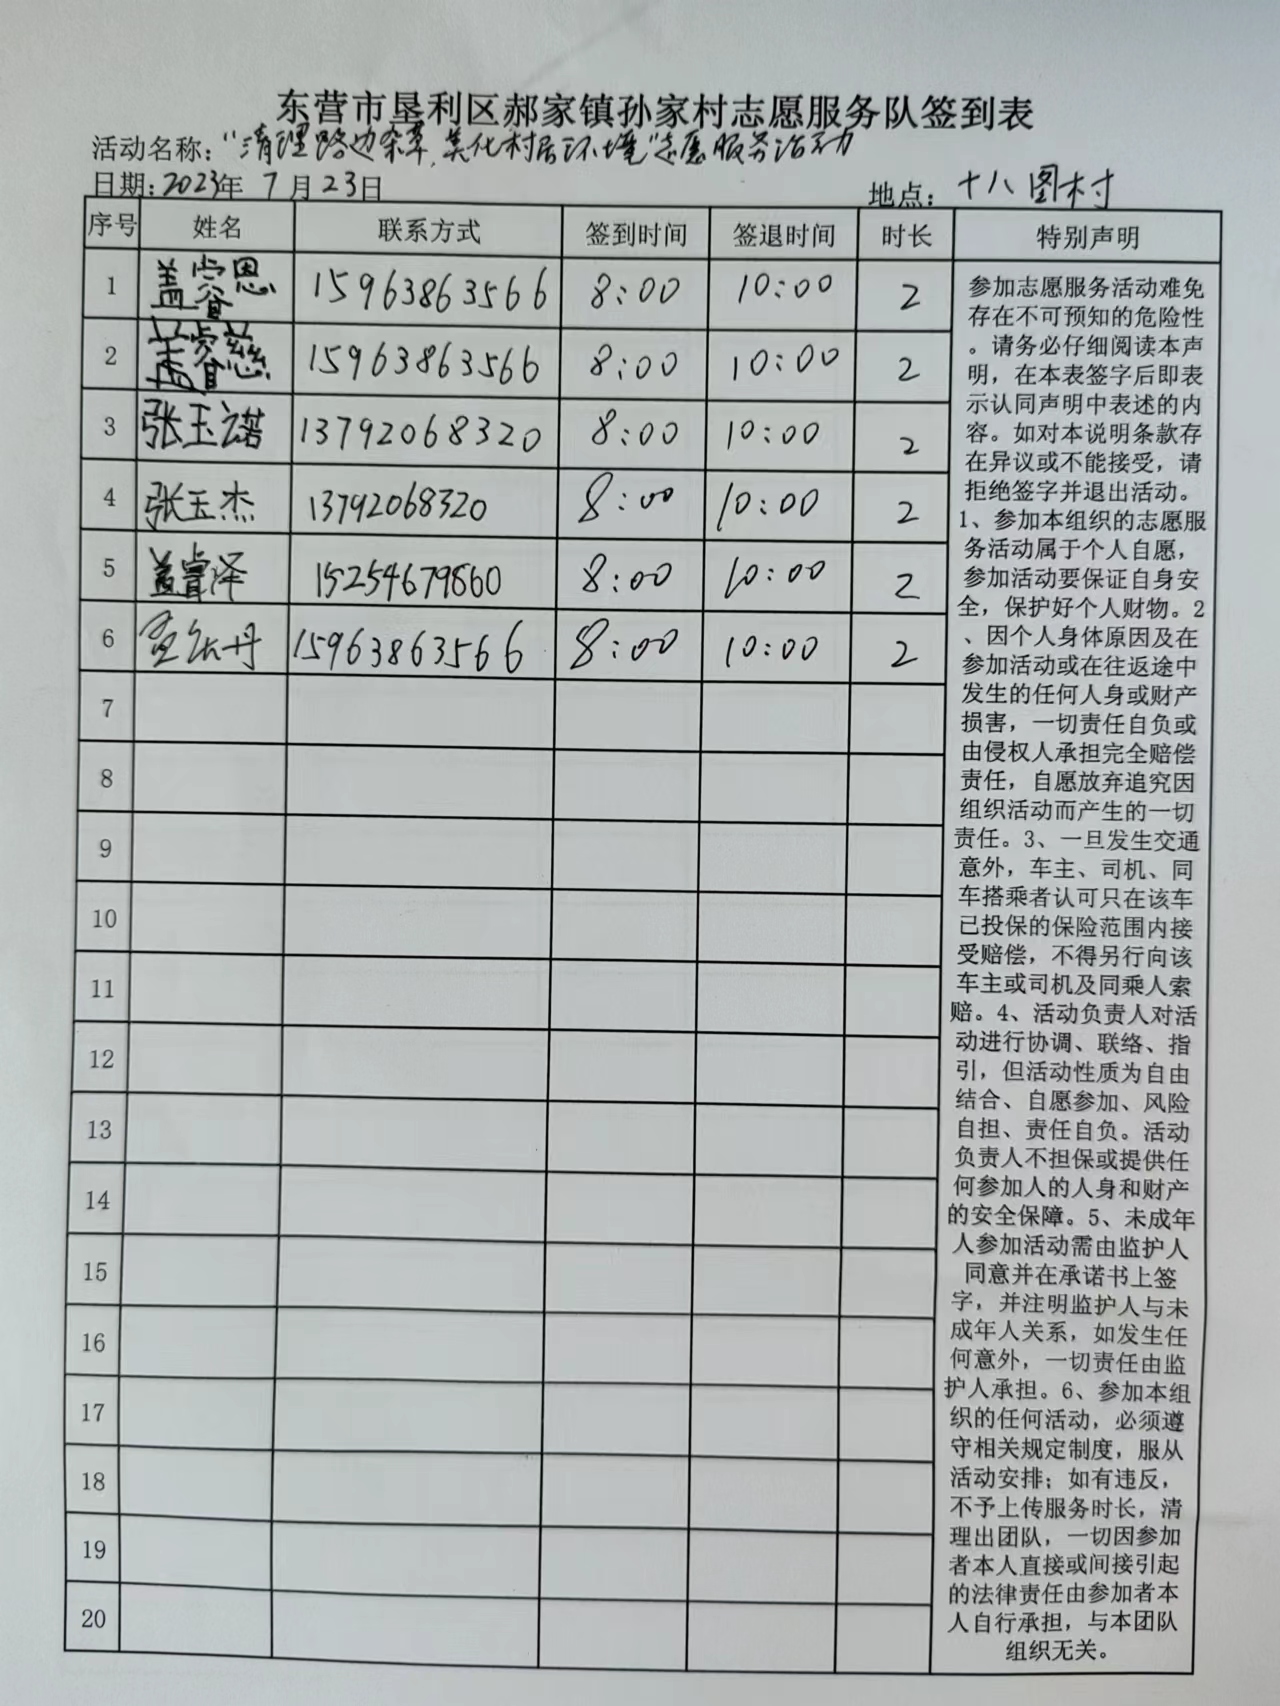 东营市垦利区郝家镇孙家村志愿服务队签到表
活动名称：“清理路边杂草，美化村居环境”志愿服务活动
日期：2023年 7月23日 地点：十八图村
序号 姓名 联系方式 签到时间 签退时间 时长 特别声明
1 盖睿恩 15963863566 8:00 10:00 2
2 盖睿慈 15963863566 8:00 10:00 2
3 张玉诺 13792068320 8:00 10:00 2
4 张玉杰 13792068320 8:00 10:00 2
5 盖睿泽 15254679860 8:00 10:00 2
6 丹 15963863566 8:00 10:00 2
7
8
9
10
11
12
13
14
15
16
17
18
19
20
参加志愿服务活动难免
存在不可预知的危险性
。请务必仔细阅读本声
明，在本表签字后即表
示认同声明中表述的内
容。如对本说明条款存
在异议或不能接受，请
拒绝签字并退出活动。
1、参加本组织的志愿服
务活动属于个人自愿，
参加活动要保证自身安
全，保护好个人财物。2
、因个人身体原因及在
参加活动或在往返途中
发生的任何人身或财产
损害，一切责任自负或
由侵权人承担完全赔偿
责任，自愿放弃追究因
组织活动而产生的一切
责任。3、一旦发生交通
意外，车主、司机、同
车搭乘者认可只在该车
已投保的保险范围内接
受赔偿，不得另行向该
车主或司机及同乘人索
赔。4、活动负责人对活
动进行协调、联络、指
引，但活动性质为自由
结合、自愿参加、风险
自担、责任自负。活动
负责人不担保或提供任
何参加人的人身和财产
的安全保障。5、未成年
人参加活动需由监护人
同意并在承诺书上签
字，并注明监护人与未
成年人关系，如发生任
何意外，一切责任由监
护人承担。6、参加本组
织的任何活动，必须遵
守相关规定制度，服从
活动安排；如有违反，
不予上传服务时长，清
理出团队，一切因参加
者本人直接或间接引起
的法律责任由参加者本
人自行承担，与本团队
组织无关。